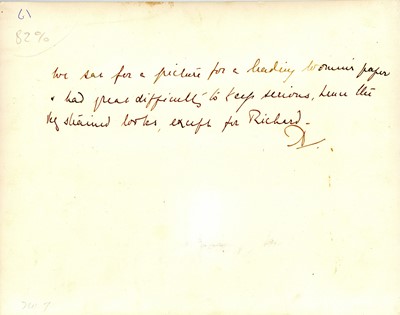 61
82%
We sat for a picture for a leading Women's paper
& had great difficulty to keep serious, hence the
strained looks, except for Richard -